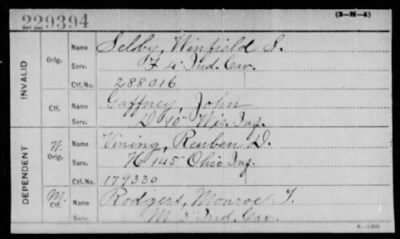 229394
(3-H-4)
INVALID
Orig. Name Selby, Winfield S.
Serv. F 4 Ind. Cav.
Ctf. No. 288016
Ctf. Name Gaffney, John
Serv. D 10" Wis. Inf.
DEPENDENT
W. Orig. Name Vining, Reuben D.
Serv. H 145" Ohio Inf.
Ctf. No. 179330
M. Ctf. Name Rodgers, Monroe T.
Serv. M 3" Ind. Cav.